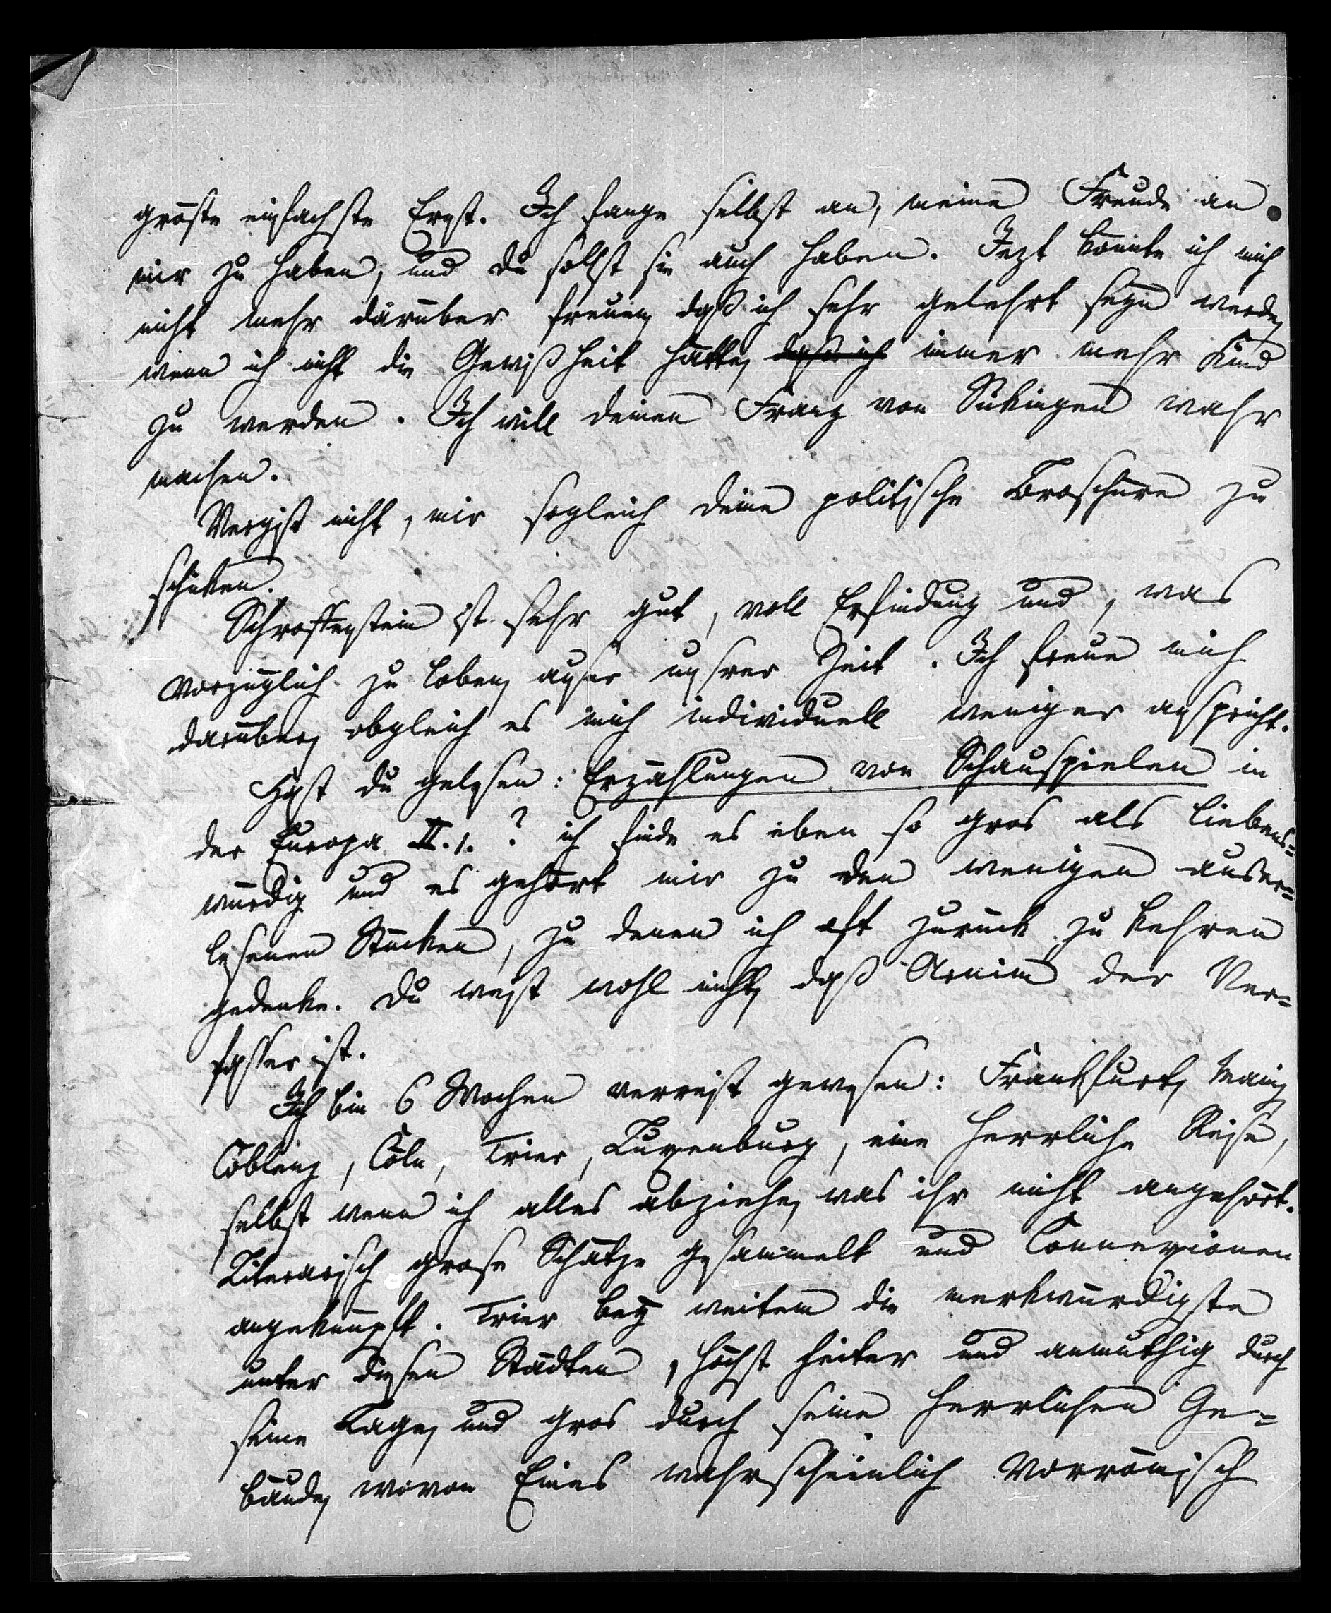 gröste einfachste Ernst. Ich fange selbst an, meine Freude an
mir zu haben, und du sollst sie auch haben. Jezt könnte ich mich
nicht mehr darüber freuen, daß ich sehr gelehrt seyn werde,
wenn ich nicht die Gewißheit hätte, daß ich immer mehr Kind
zu werden. Ich will deinen Franz von Sickingen wahr
machen.
Vergiß nicht, mir sogleich deine politische Broschüre zu
schicken.
Schroffenstein ist sehr gut, voll Erfindung und, was
vorzüglich zu loben, außer unsrer Zeit. Ich freue mich
darüber, obgleich es mich individuell weniger anspricht.
Hast du gelesen: Erzählungen von Schauspielen in
der Europa II. 1.? ich finde es eben so gros als liebens=
würdig und es gehört mir zu den wenigen auser=
lesenen Stücken, zu denen ich oft zurück zu kehren
gedenke. Du weist wohl nicht, daß Arnim der Ver=
fasser ist.
Ich bin 6 Wochen verreist gewesen: Frankfurt, Mainz,
Coblenz, Cöln, Trier, Luxenburg, eine herrliche Reise,
selbst wenn ich alles abziehe, was ihr nicht angehört.
Literarisch grose Schätze gesammelt und Connexionen
angeknüpft. Trier bey weitem die merkwürdigste
unter diesen Städten, höchst heiter und anmuthig durch
seine Lage, und gros durch seine herrlichen Ge=
bäude, wovon Eines wahrscheinlich vorrömisch